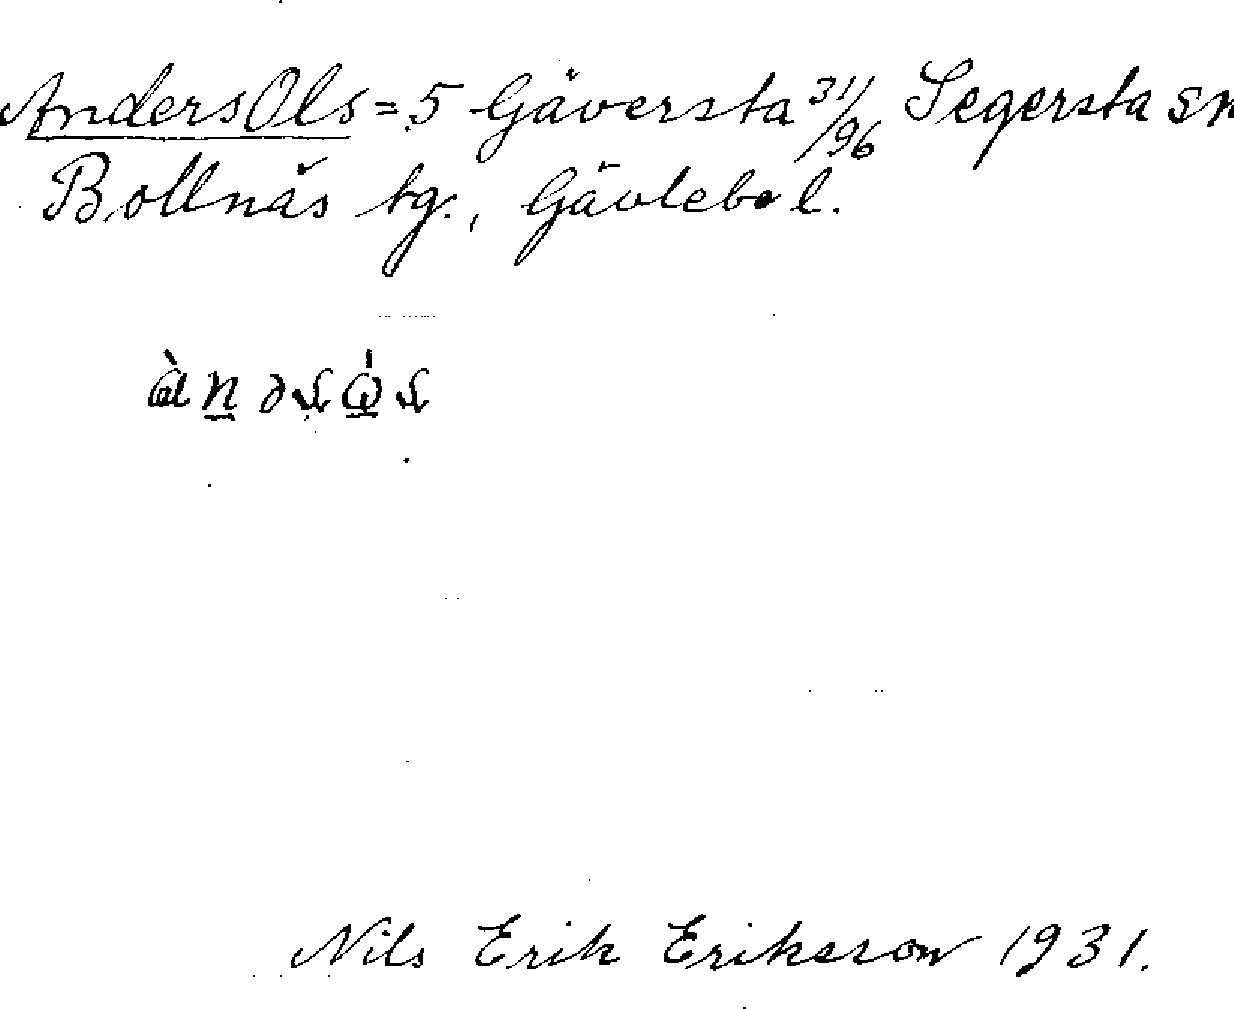 Anders Ols = 5 Gäversta 31/96 Segersta sn
Bollnäs tg., Gävlebo l.
Nils Erik Eriksson 1931.